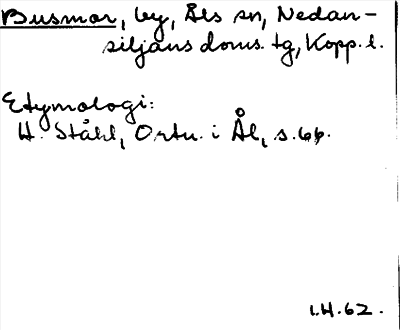 Busmor, by, Åls sn, Nedan-
siljans doms. tg, Kopp. l.
Etymologi:
H. Ståhl, Ortn. i Ål, s. 66.
I.H.62.